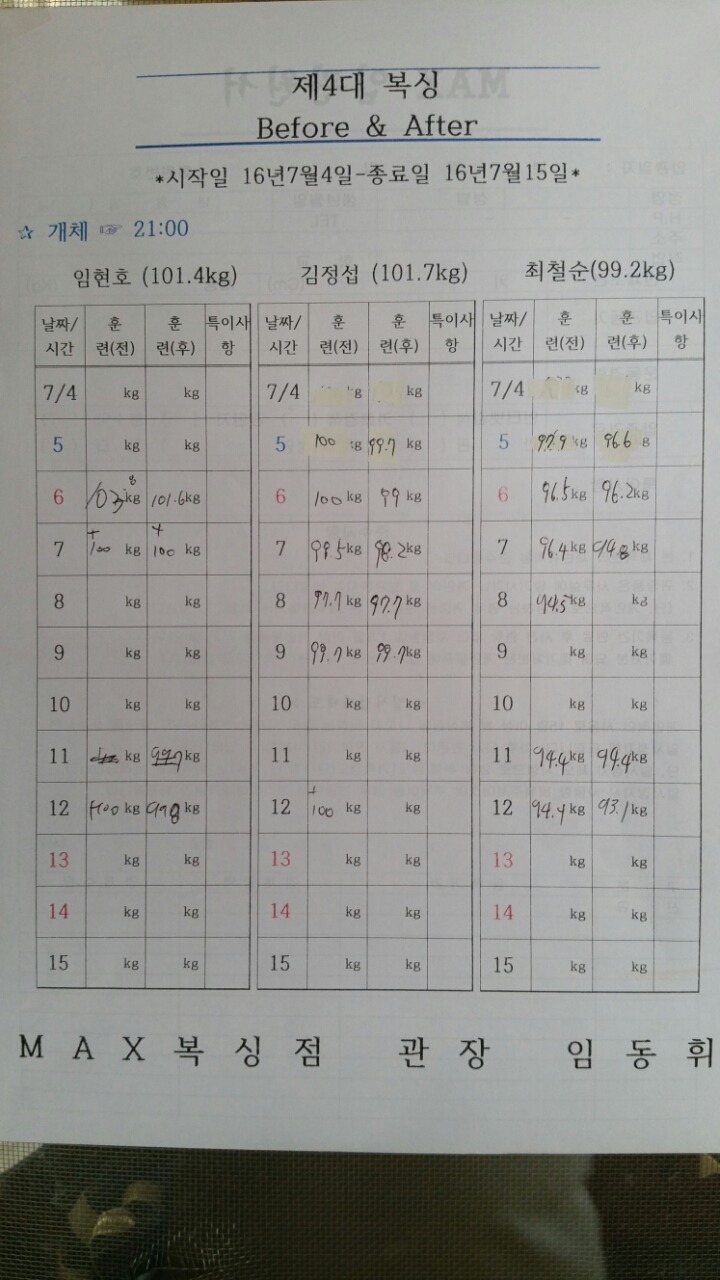 제4대 복싱
Before & After
*시작일 16년7월4일-종료일 16년7월15일*
☆ 개체 ☞ 21:00
임현호 (101.4kg) 김정섭 (101.7kg) 최철순(99.2kg)
날짜/시간 훈련(전) 훈련(후) 특이사항 날짜/시간 훈련(전) 훈련(후) 특이사항 날짜/시간 훈련(전) 훈련(후) 특이사항
7/4 kg kg 7/4 kg kg 7/4 kg kg
5 kg kg 5 100 kg 99.7 kg 5 97.9 kg 96.6 g
6 103.8 kg 101.6kg 6 100 kg 99 kg 6 96.5kg 96.2kg
7 +100 kg +100 kg 7 99.5kg 98.2kg 7 96.4kg 94.8kg
8 kg kg 8 97.7 kg 97.7 kg 8 94.5kg kg
9 kg kg 9 99.7 kg 99.7kg 9 kg kg
10 kg kg 10 kg kg 10 kg kg
11 kg kg 11 kg kg 11 94.4kg 94.4kg
12 +100 kg 99.8 kg 12 +100 kg kg 12 94.4 kg 93.1 kg
13 kg kg 13 kg kg 13 kg kg
14 kg kg 14 kg kg 14 kg kg
15 kg kg 15 kg kg 15 kg kg
MAX복싱점 관장 임동휘